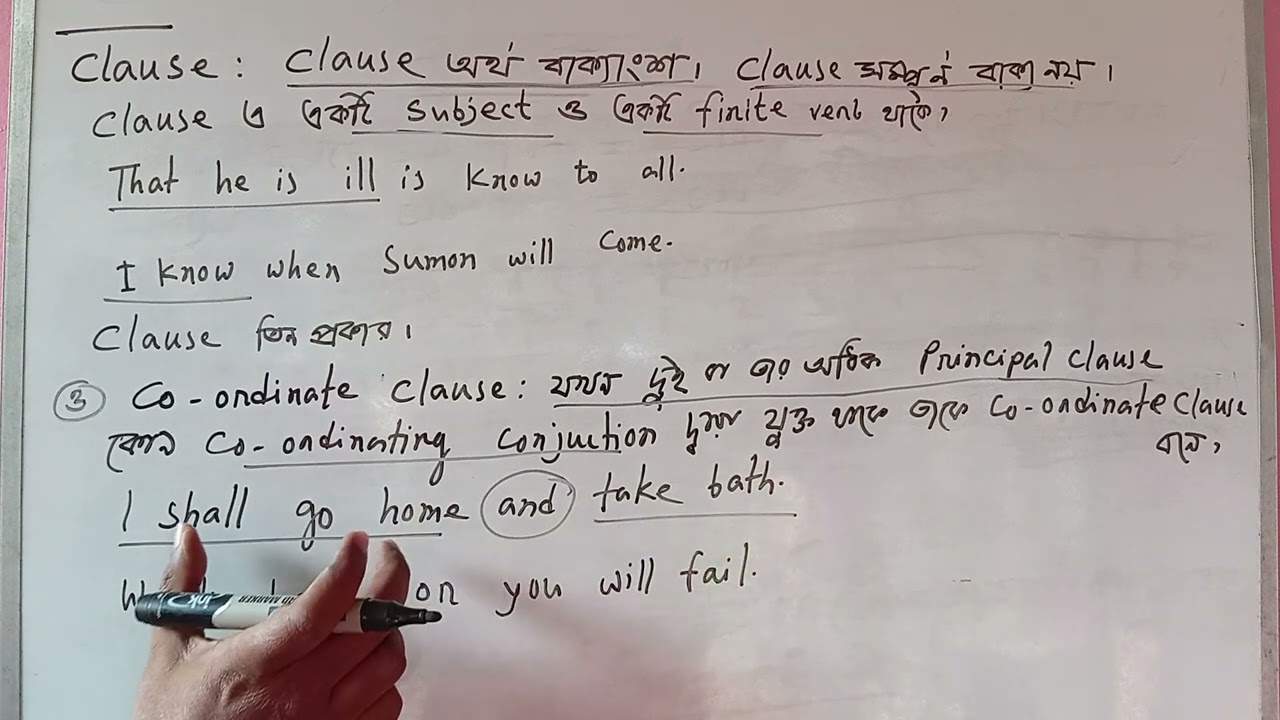 Clause: Clause অর্থ বাক্যাংশ। Clause সম্পূর্ন বাক্য নয়।
Clause এ একটি Subject ও একটি finite verb থাকে,
That he is ill is know to all.
I know when Sumon will come.
Clause তিন প্রকার।
③ Co-ordinate Clause: যখন দুই বা এর অধিক Principal Clause
কোন Co-ordinating Conjuction দ্বারা যুক্ত থাকে তাকে Co-ordinate Clause
বলে,
I shall go home and take bath.
on you will fail.